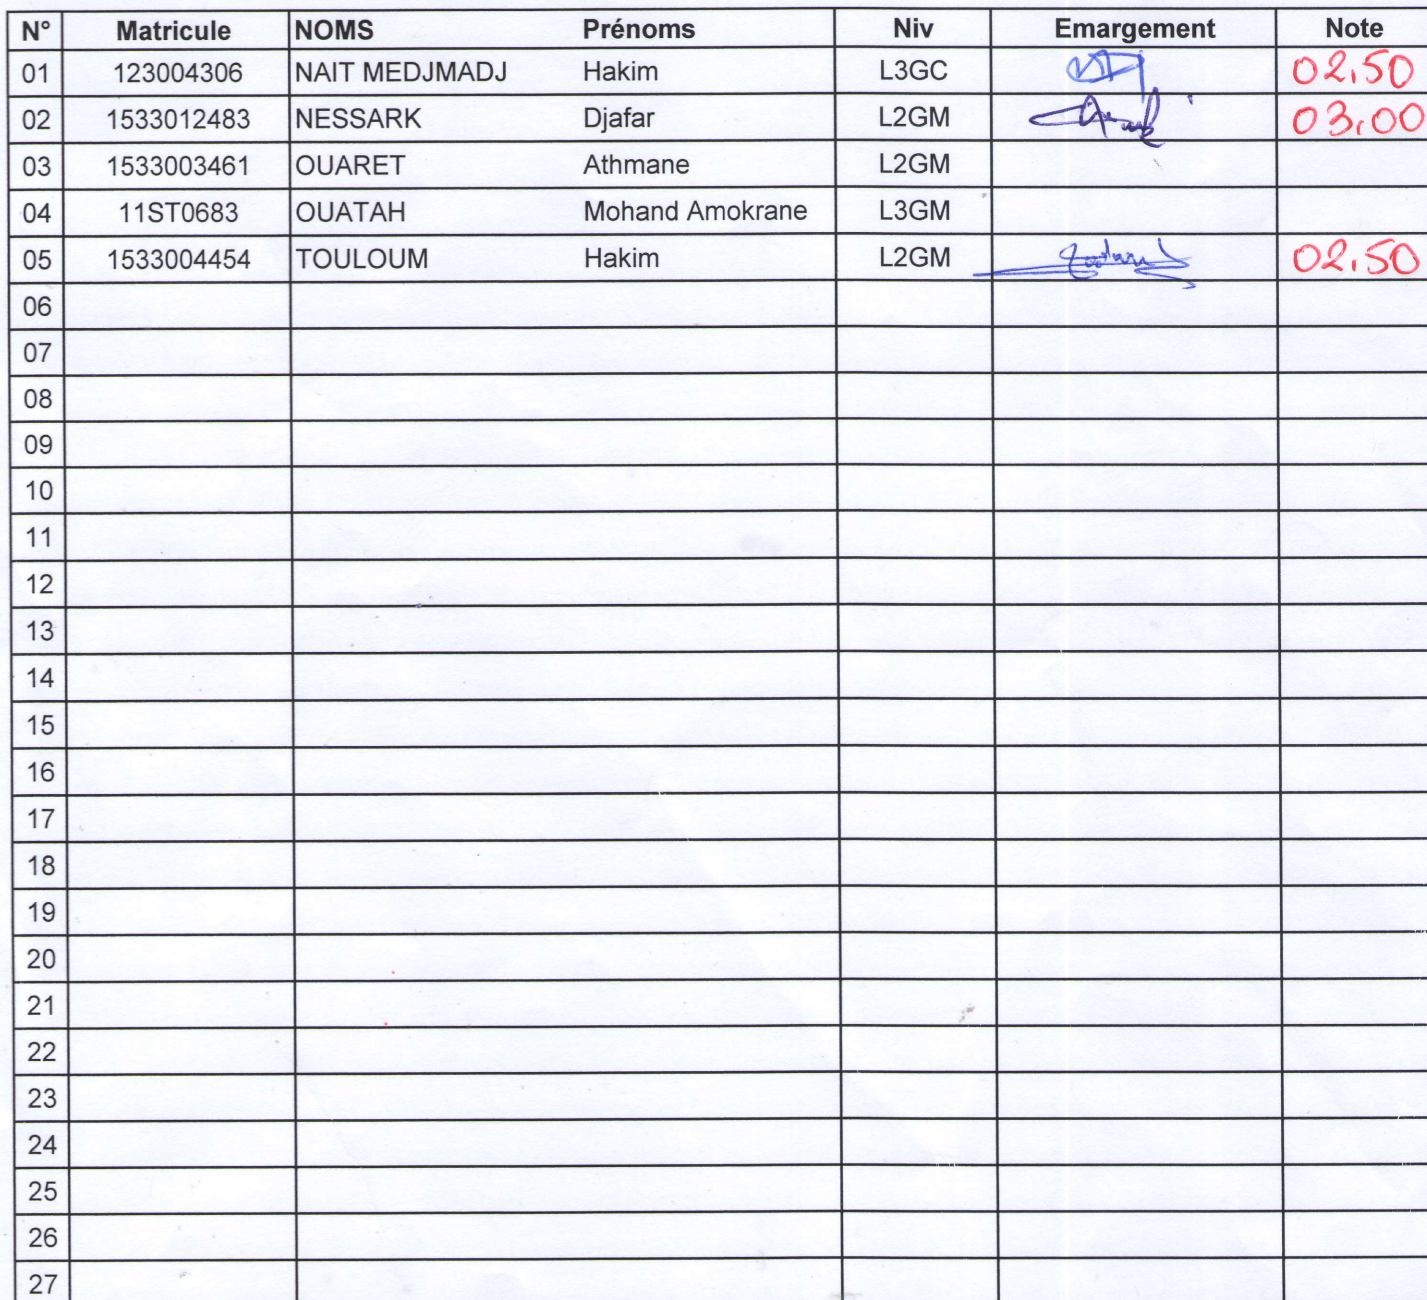 N° Matricule NOMS Prénoms Niv Emargement Note
01 123004306 NAIT MEDJMADJ Hakim L3GC 02,50
02 1533012483 NESSARK Djafar L2GM 03,00
03 1533003461 OUARET Athmane L2GM
04 11ST0683 OUATAH Mohand Amokrane L3GM
05 1533004454 TOULOUM Hakim L2GM 02,50
06
07
08
09
10
11
12
13
14
15
16
17
18
19
20
21
22
23
24
25
26
27